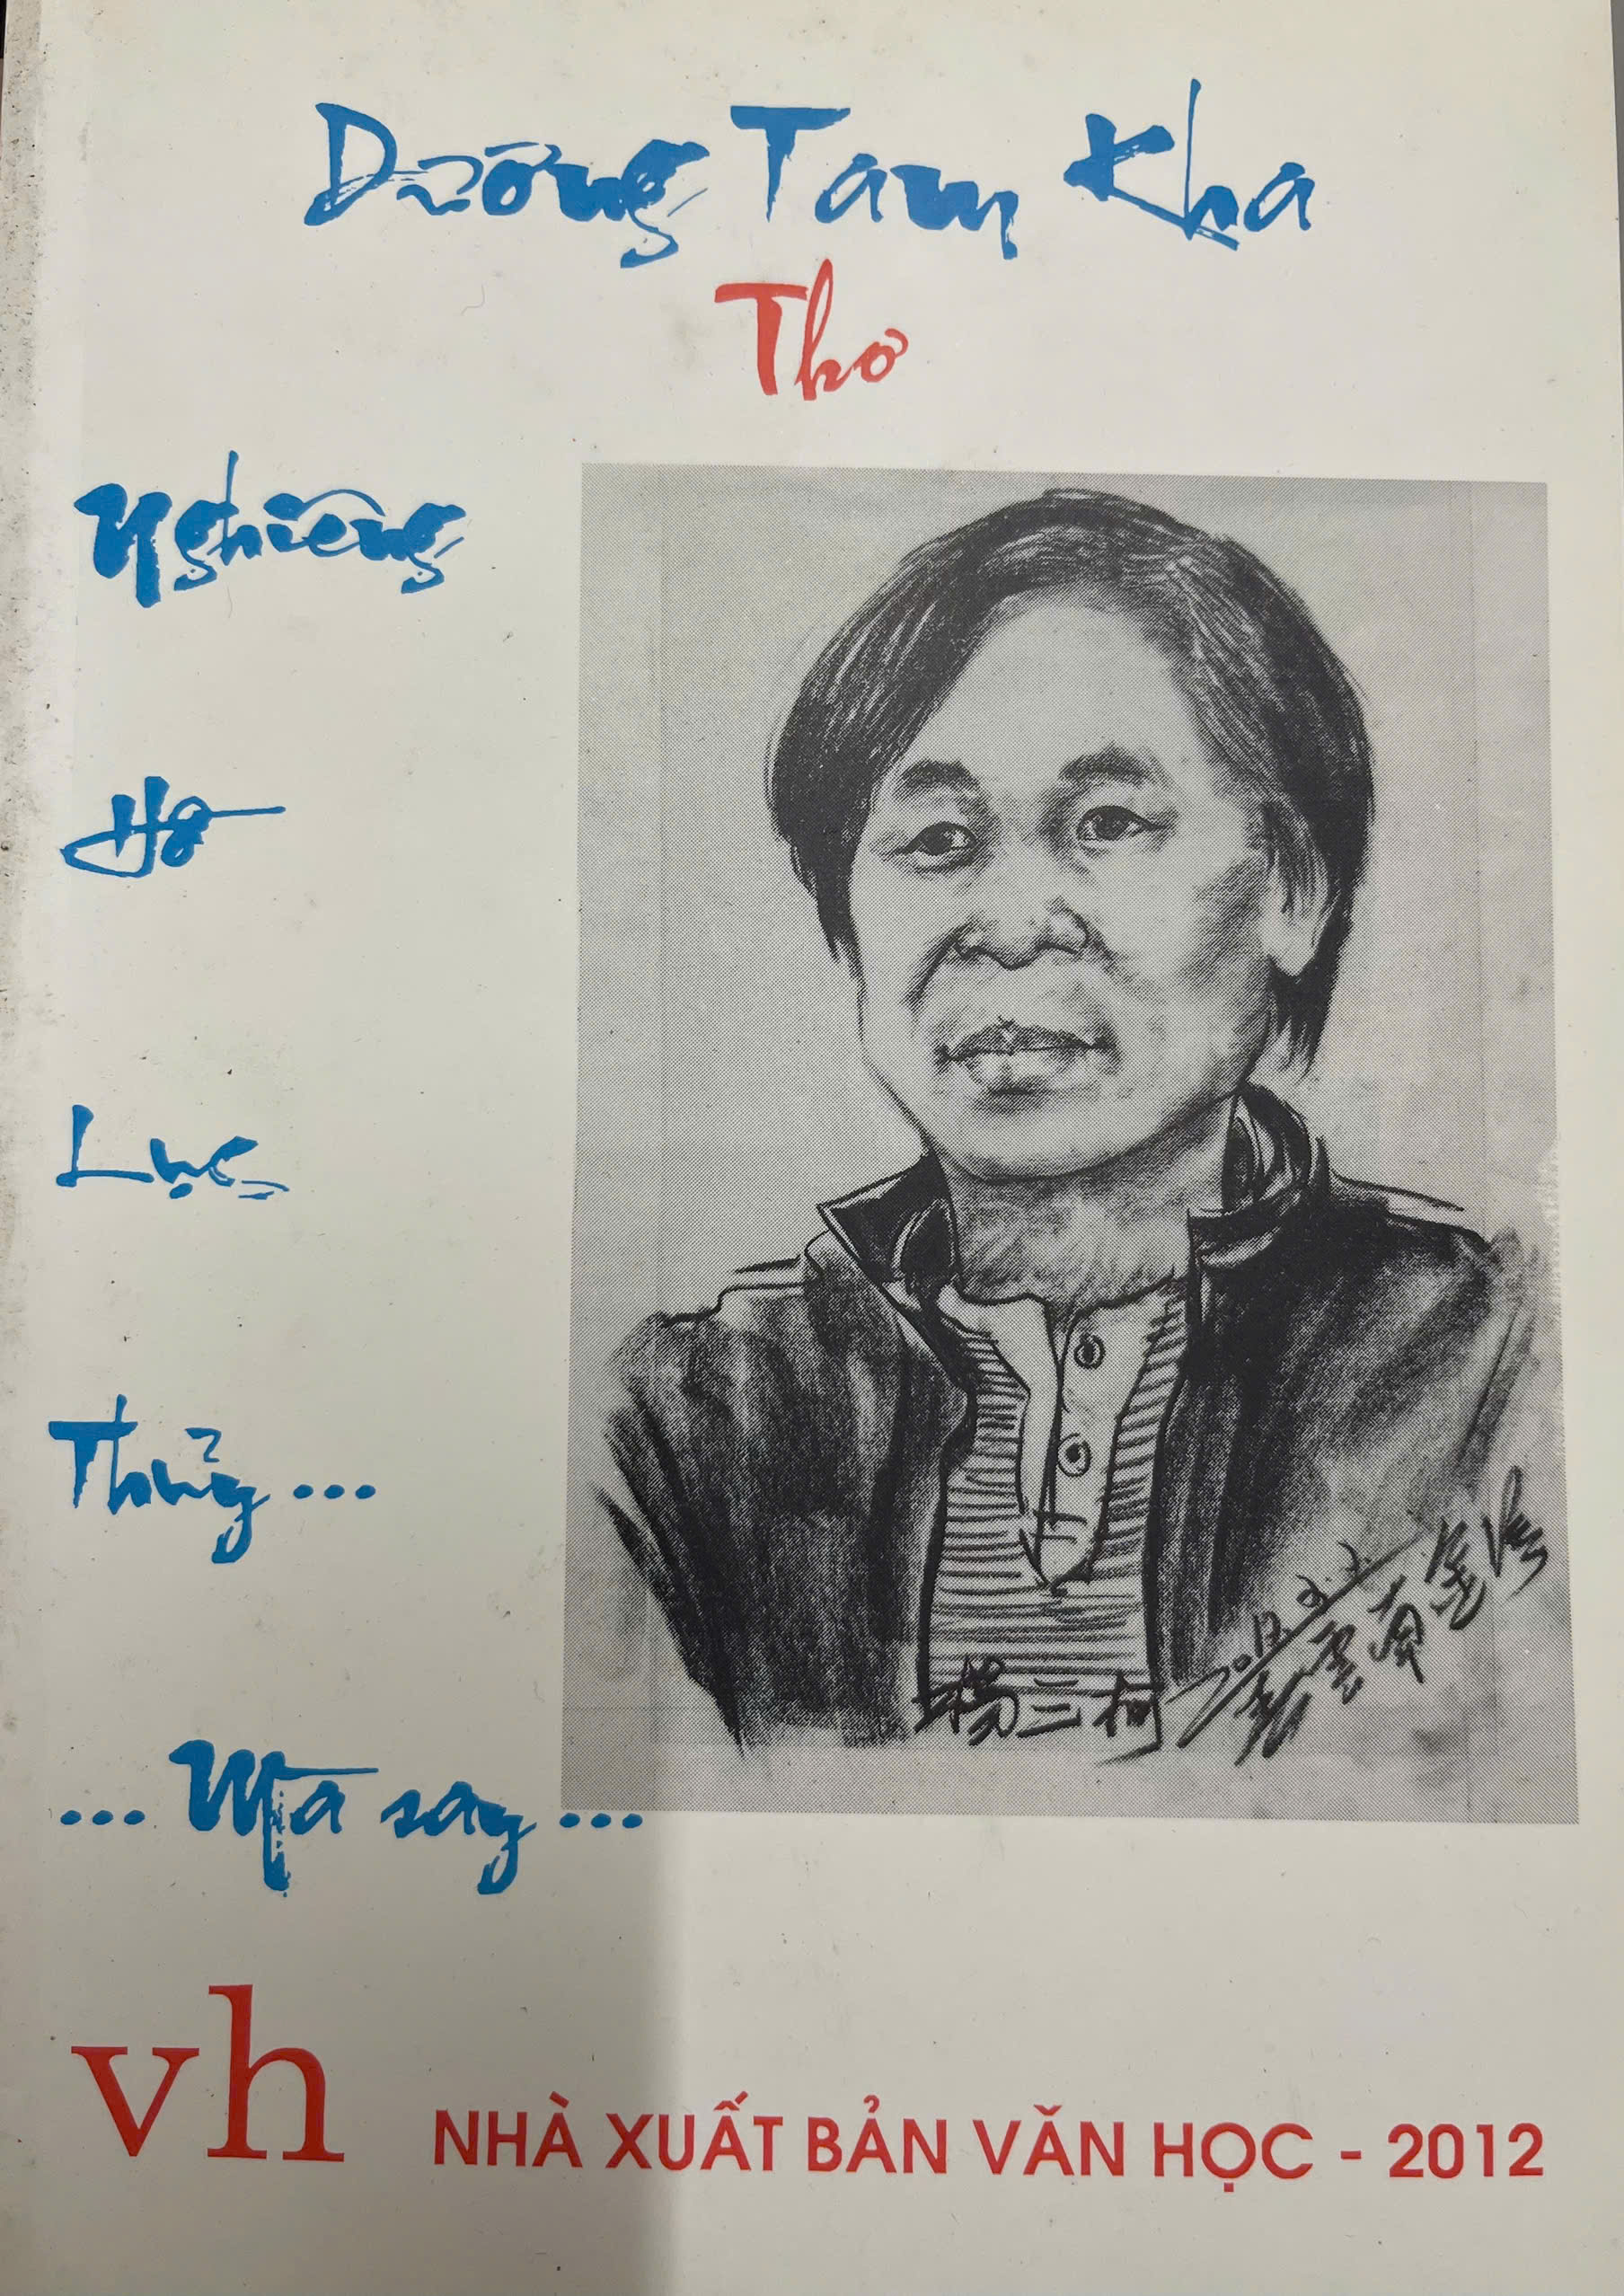 Dương Tam Kha
Thơ
Nghiêng
Hồ
Lục
Thủy ...
... Mà say ...
楊三柯
2012.2.2.
雲南
vh NHÀ XUẤT BẢN VĂN HỌC - 2012